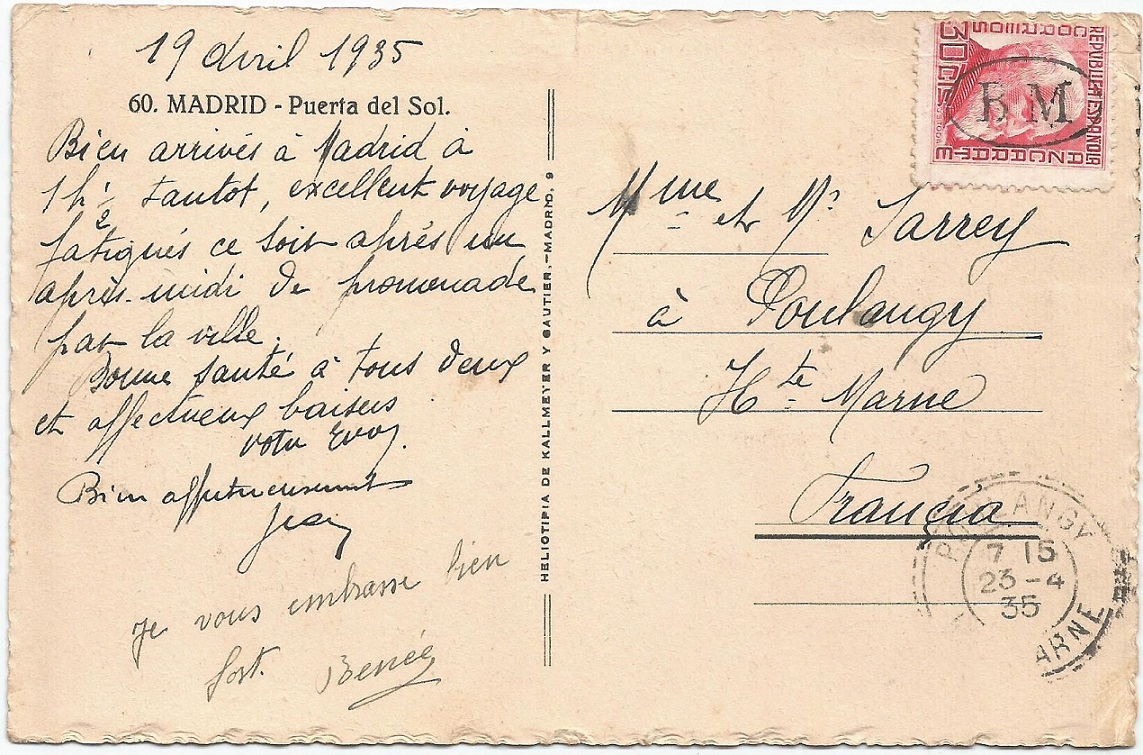 19 Avril 1935
60. MADRID - Puerta del Sol.
Bien arrivés à Madrid à
1h½ tantot, excellent voyage
fatigués ce soir après un
après-midi de promenade
par la ville.
Bonne santé à tous deux
et affectueux baisers
votre
Bien affectueusement
Jean
je vous embrasse bien
fort. Renée
HELIOTIPIA DE KALLMEYER Y GAUTIER.-MADRID. 9
REPUBLICA ESPAÑOLA
CORREOS
30 CTS
AZCARATE
B M
Mme et Mr Sarrey
à Poulangy
Hte Marne
Francia
POULANGY
7 15
23-4
35
ARNE